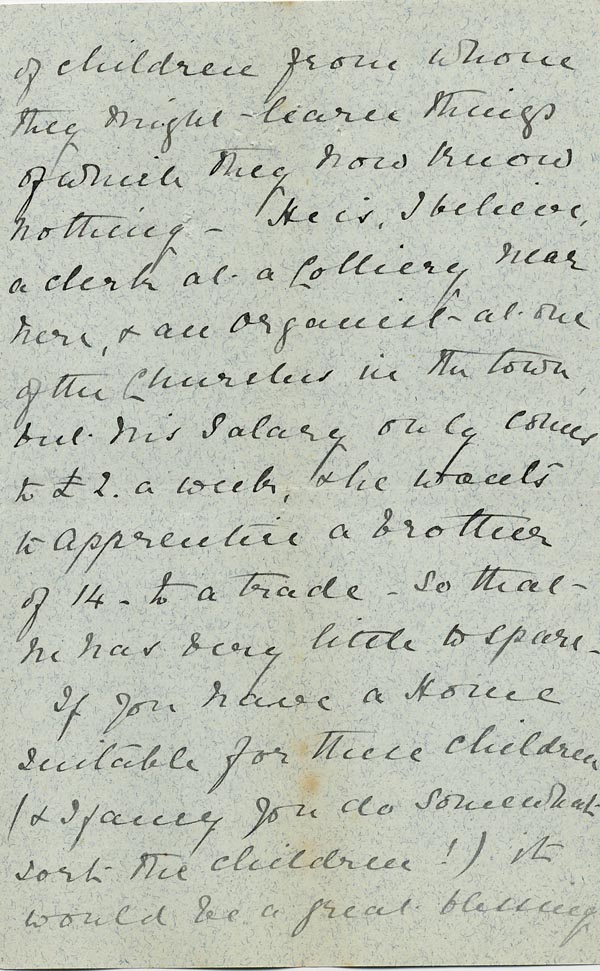 of children from whom
they might learn things
of which they now know
nothing - He is, I believe,
a clerk at a Colliery near
here, & an organist at one
of the Churches in the town,
but his salary only comes
to £2. a week, & he wants
to apprentice a brother
of 14 - to a trade - so that
he has very little to spare -
If you have a Home
suitable for these children
(& I fancy you do somewhat
sort the children!) it
would be a great blessing